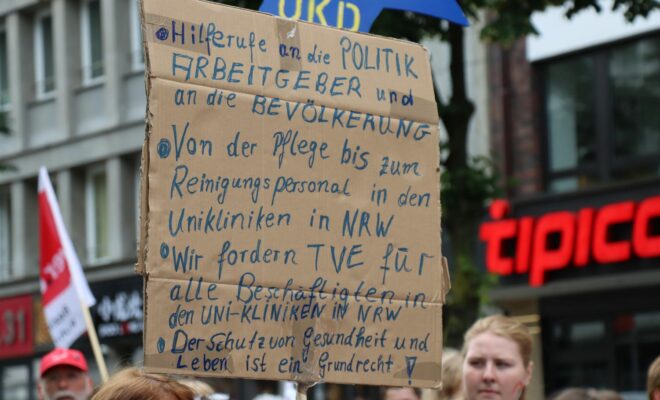 UKD
• Hilferufe an die POLITIK
ARBEITGEBER und
an die BEVÖLKERUNG
• Von der Pflege bis zum
Reinigungspersonal in den
Unikliniken in NRW
• Wir fordern TVE für
alle Beschäftigten in
den UNI-KLINIKEN IN NRW
• Der Schutz von Gesundheit und
Leben ist ein Grundrecht !
tipico
31